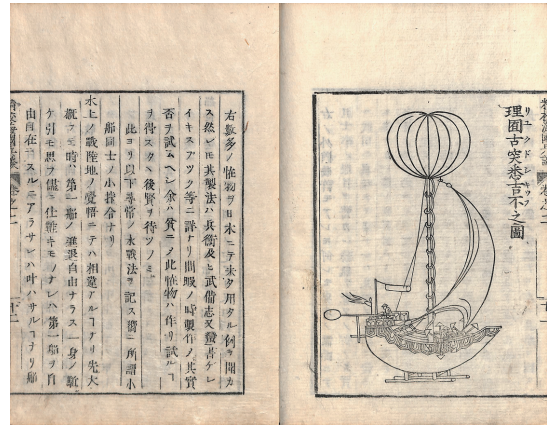 リユクドシキツプ
理圖古突悉吉不之圖
右數多ノ怪物ヲ日本ニテ未タ用タル例ヲ聞カ
ス然レ𪜈其製法ハ兵衡及ヒ武備志又蠻書ケレ
イキスブック等ニ詳ナリ閑暇ノ時製作ノ其實
否ヲ試ムヘシ余ハ貧ニノ此怪物ハ作リ試ルヿ
ヲ得スタヽ後賢ヲ待ツノミ
此ヨリ以下尋常ノ水戰法ヲ記ス爾ニ所謂小
船同士ノ小合ナリ
水上ノ戰陸地ノ覺悟ニテハ相違アルヿナリ先大
概ヲ云時ハ第一船ノ張自由ナラス一身ノ駈
ケ引モ思フ儘ニ仕難キモノナレハ第一船ヲ自
由自在ニスルニアラサレハ叶ハサルヿナリ船